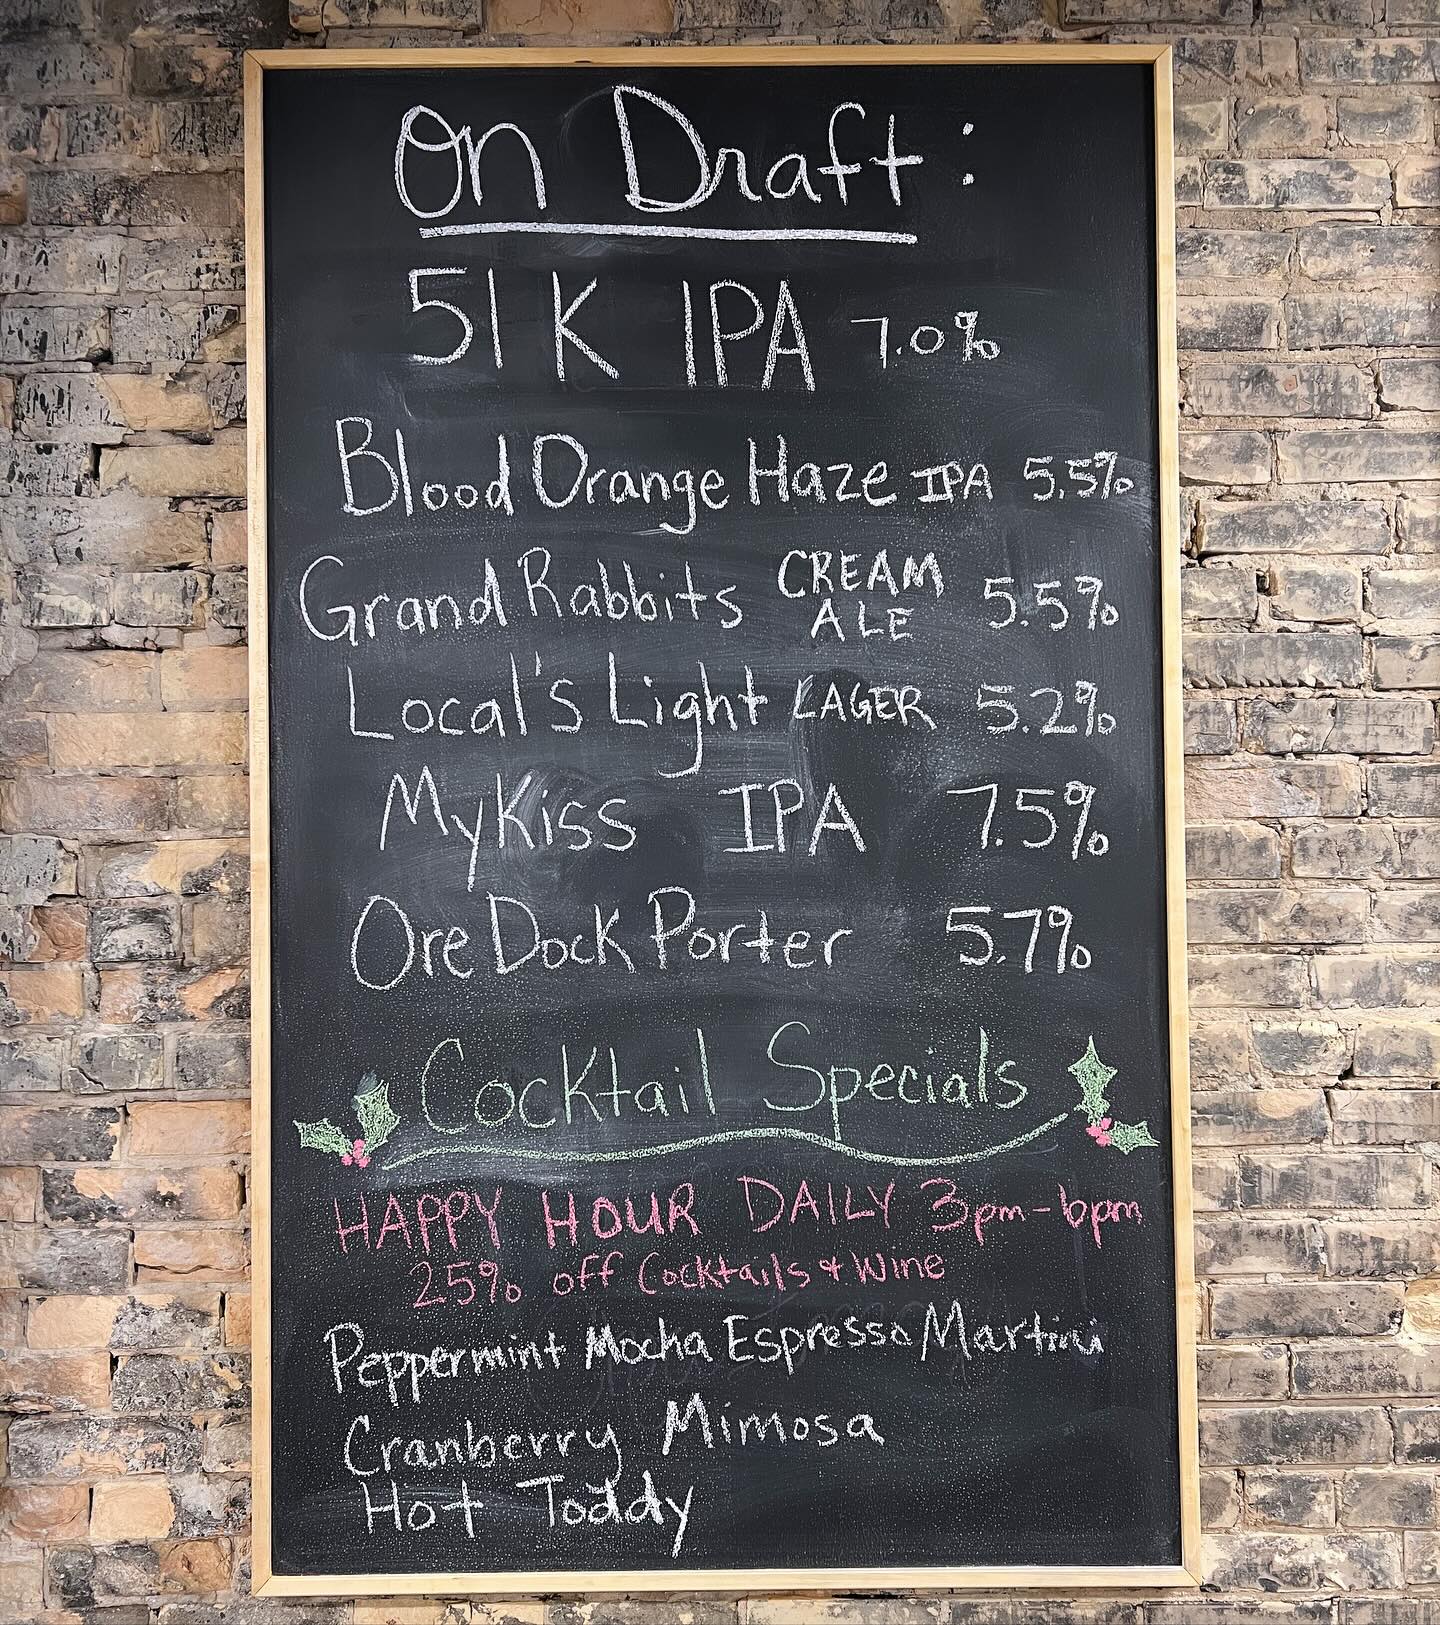 On Draft:
51K IPA 7.0%
Blood Orange Haze IPA 5.5%
Grand Rabbits CREAM ALE 5.5%
Local's Light LAGER 5.2%
MyKiss IPA 7.5%
Ore Dock Porter 5.7%
Cocktail Specials
HAPPY HOUR DAILY 3pm-6pm
25% off Cocktails + Wine
Peppermint Mocha Espresso Martini
Cranberry Mimosa
Hot Toddy